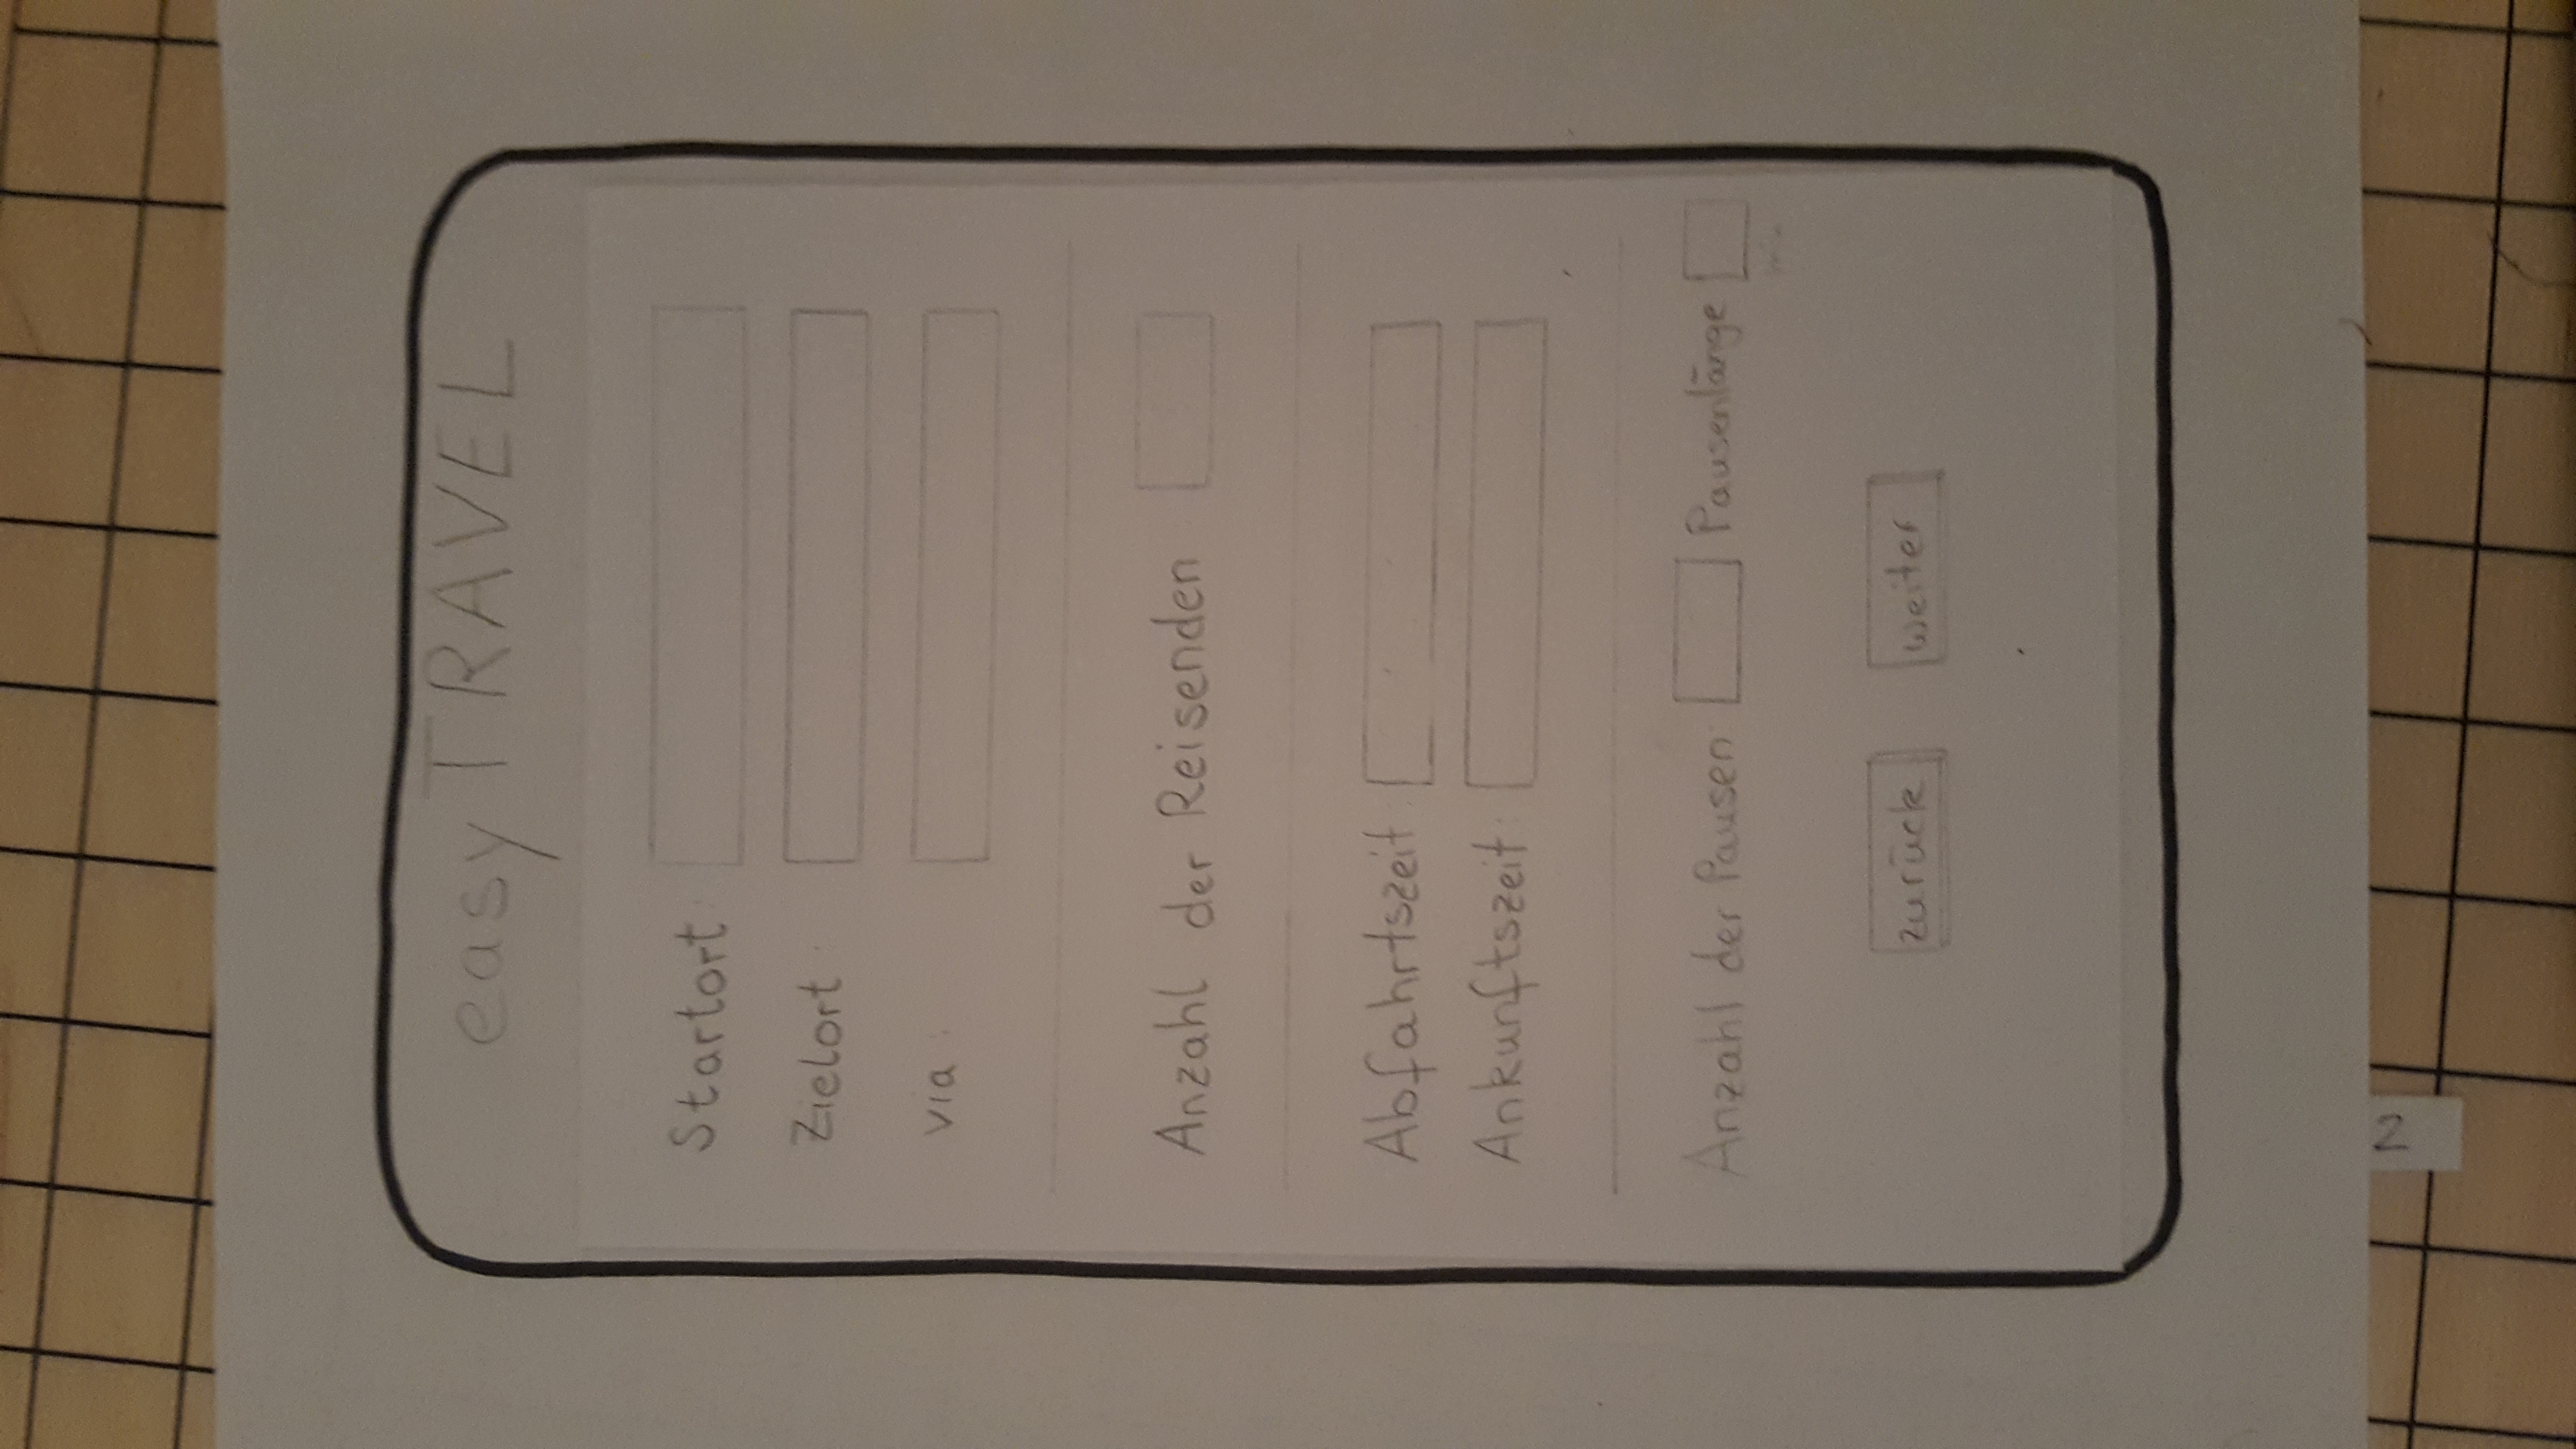 easy TRAVEL
Startort
Zielort
via :
Anzahl der Reisenden
Abfahrtszeit
Ankunftszeit
Anzahl der Pausen Pausenlänge
min
zurück weiter
N